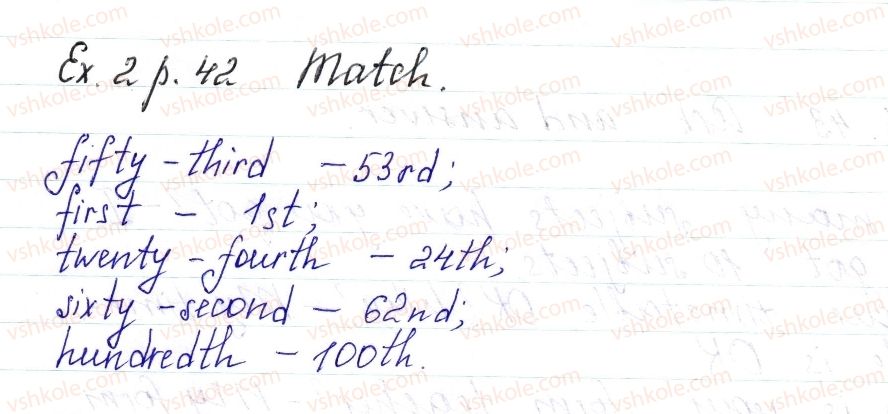 Ex. 2 p. 42 Match.
fifty-third - 53rd;
first - 1st;
twenty-fourth - 24th;
sixty-second - 62nd;
hundredth - 100th.